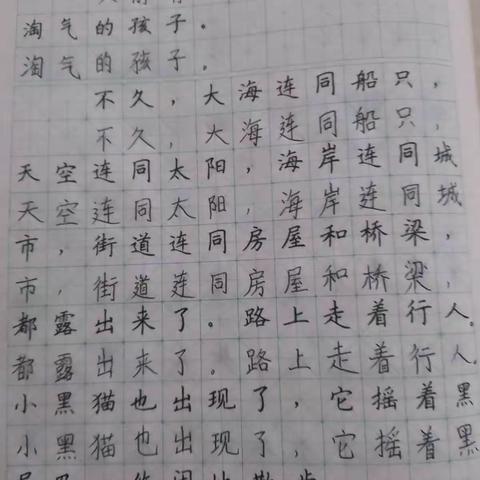 淘气的孩子。
淘气的孩子。
不久,大海连同船只,
不久,大海连同船只,
天空连同太阳,海岸连同城
天空连同太阳,海岸连同城
市,街道连同房屋和桥梁,
市,街道连同房屋和桥梁,
都露出来了。路上走着行人。
都露出来了。路上走着行人。
小黑猫也出现了,它摇着黑
小黑猫也出现了,它摇着黑